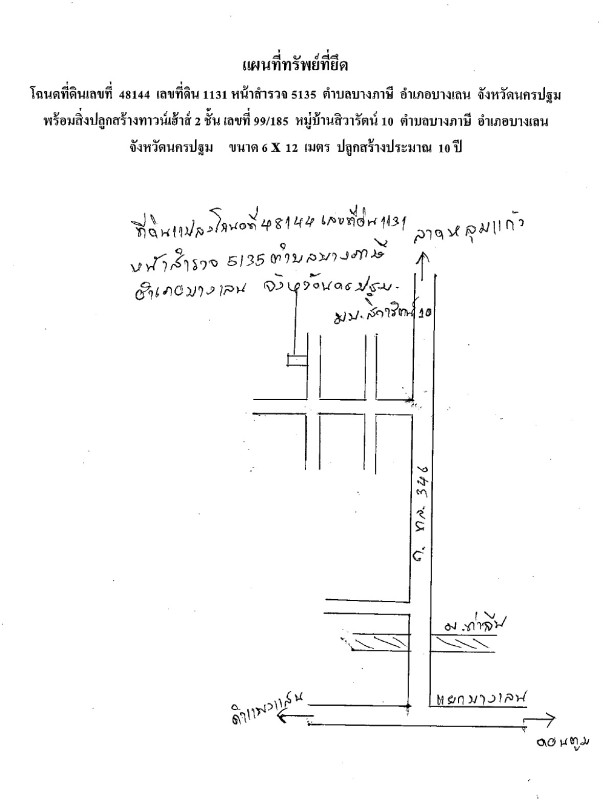 แผนที่ทรัพย์ที่ยึด
โฉนดที่ดินเลขที่ 48144 เลขที่ดิน 1131 หน้าสำรวจ 5135 ตำบลบางภาษี อำเภอบางเลน จังหวัดนครปฐม
พร้อมสิ่งปลูกสร้างทาวน์เฮ้าส์ 2 ชั้น เลขที่ 99/185 หมู่บ้านสิวารัตน์ 10 ตำบลบางภาษี อำเภอบางเลน
จังหวัดนครปฐม ขนาด 6 X 12 เมตร ปลูกสร้างประมาณ 10 ปี
ที่ดินแปลงโฉนดที่ 48144 เลขที่ดิน 1131
หน้าสำรวจ 5135 ตำบลบางภาษี
อำเภอบางเลน จังหวัดนครปฐม.
ลาดหลุมแก้ว
มบ.สิวารัตน์ 10
ถ. ทล. 346
ม.ท่าจีน
แยกบางเลน
กำแพงแสน
ดอนตูม